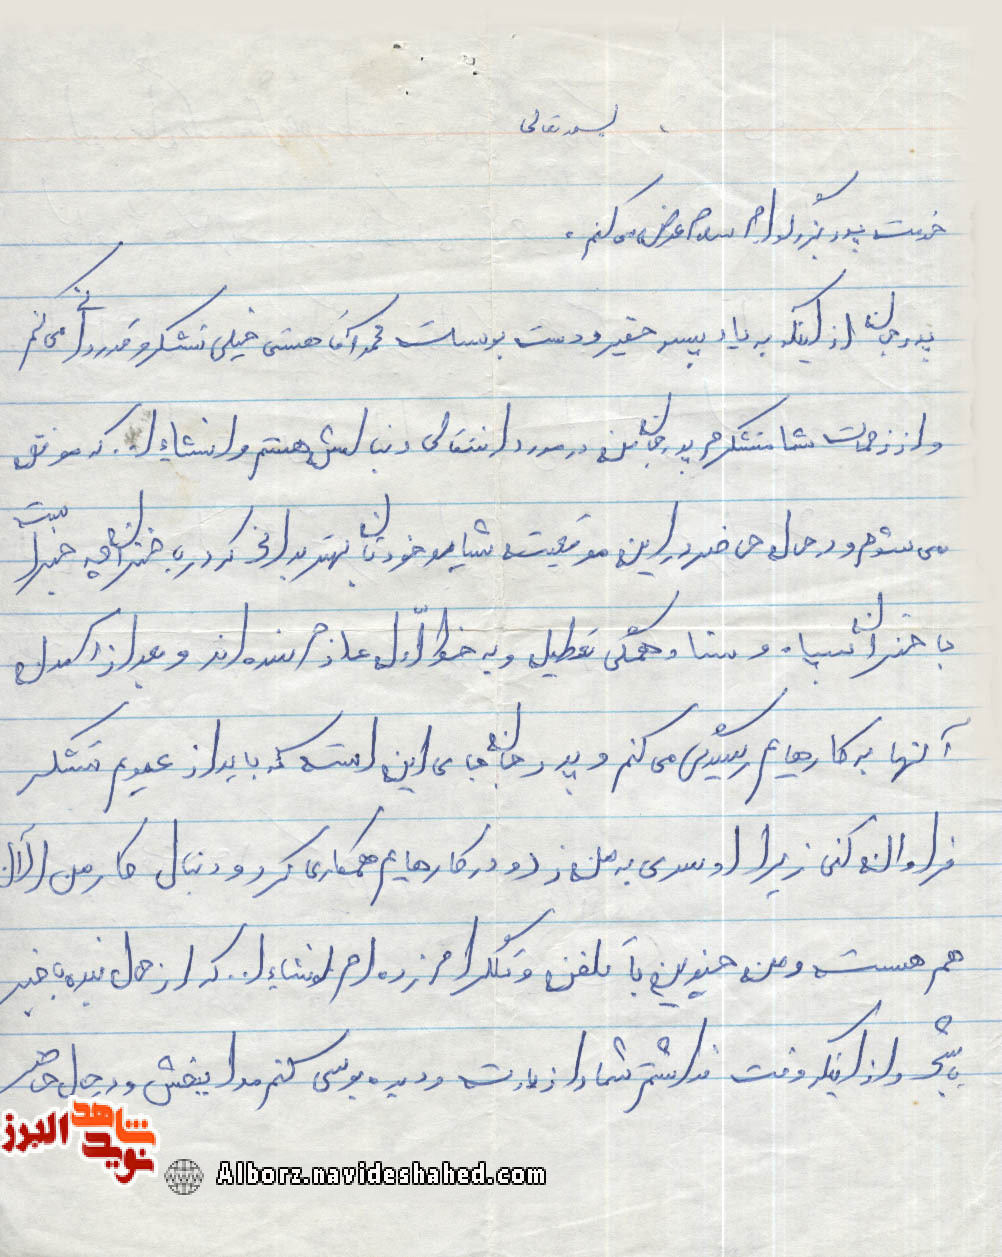 بسمه تعالی
خدمت پدر بزرگوارم سلام عرض می کنم.
پدرجان از اینکه به یاد پسر حقیر و دست بوست محمد آقا هستی خیلی تشکر و قدردانی می کنم
و از زحمات شما متشکرم پدرجان من در مورد انتقالی دنبالش هستم و انشاءا.. که موفق
می شوم و در حال حاضر در این موقعیت شاید خودتان بهتر بدانی که در باختران چه خبر است
باختران سپاه و ستاد همگی تعطیل و به خط اول عازم شده اند و بعد از آمدن
آنها به کارهایم رسیدگی می کنم و پدرجان جای این است که باید از عمویم تشکر
فراوان کنی زیرا او سری به من زد و در کارهایم همکاری کرد و دنبال کار من الان
هم هست و من چندین با تلفن و تلگرام زده ام انشاءا.. که از حال بنده با خبر
باشی و از اینکه وقت نداشتم شما را زیارت و دیده بوسی کنم مرا ببخش و در حال حاضر
شاهد
نوید
البرز
Alborz.navideshahed.com